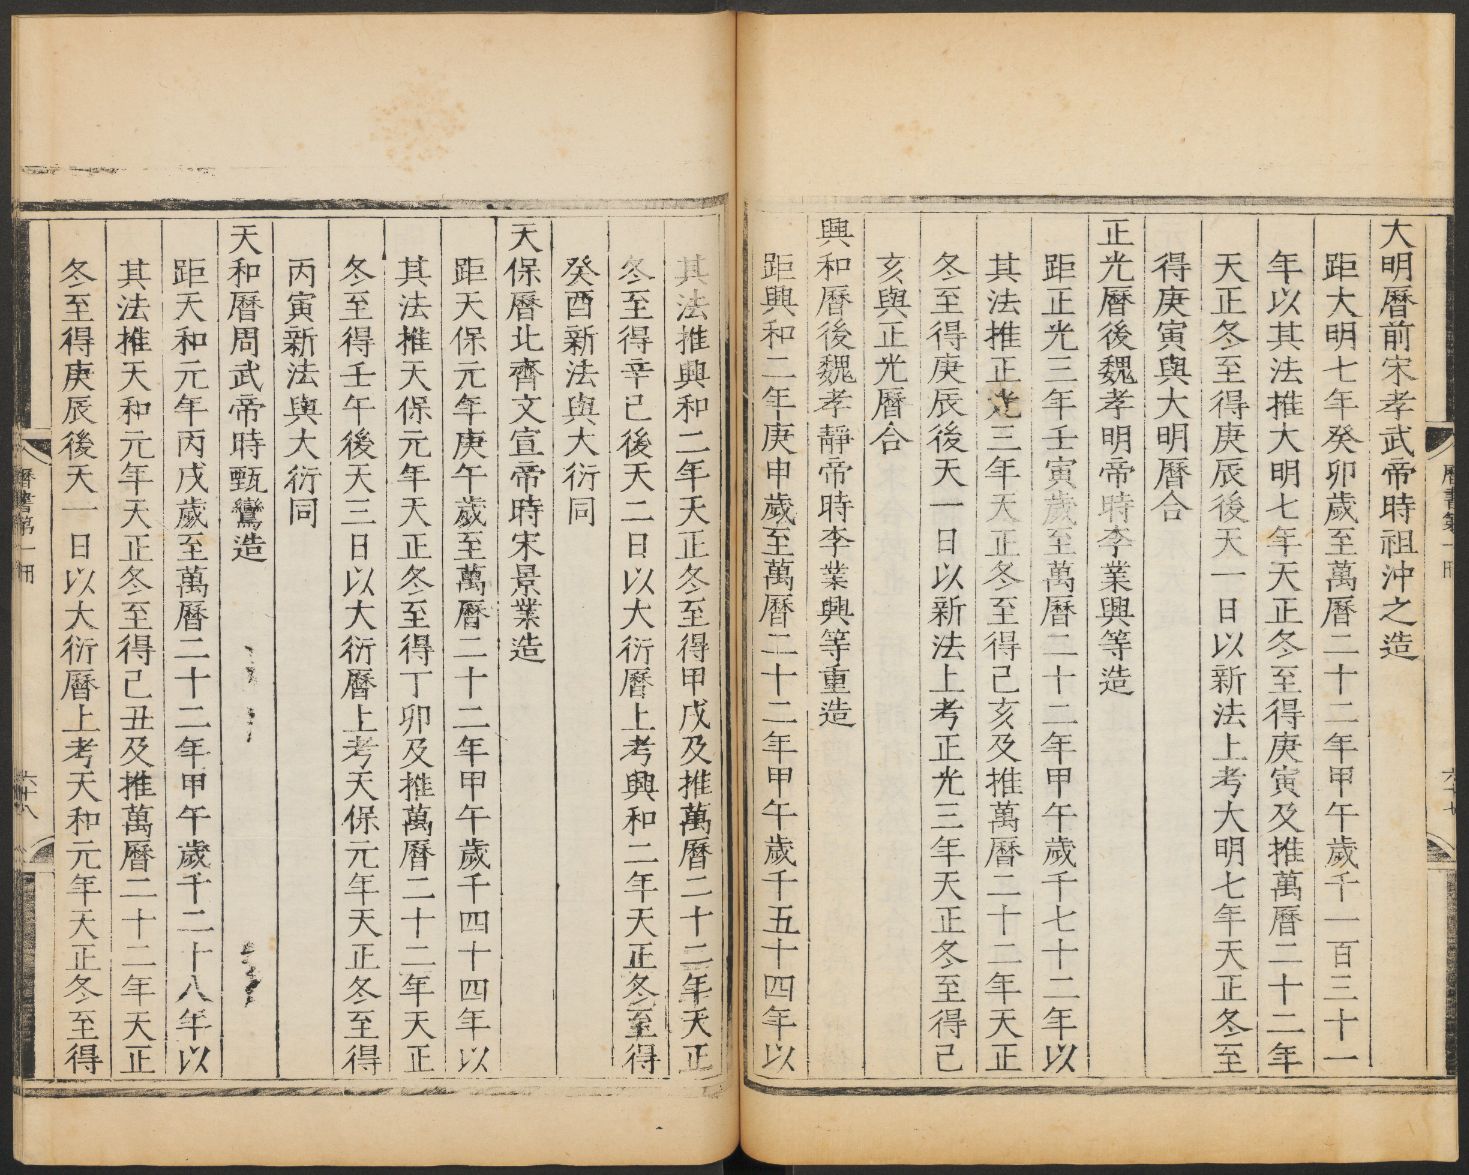 大明曆前宋孝武帝時祖沖之造
距大明七年癸卯歲至萬曆二十二年甲午歲千一百三十一
年以其法推大明七年天正冬至得庚寅及推萬曆二十二年
天正冬至得庚辰後天一日以新法上考大明七年天正冬至
得庚寅與大明曆合
正光曆後魏孝明帝時李業興等造
距正光三年壬寅歲至萬曆二十二年甲午歲千七十二年以
其法推正光三年天正冬至得己亥及推萬曆二十二年天正
冬至得庚辰後天一日以新法上考正光三年天正冬至得己
亥與正光曆合
興和曆後魏孝靜帝時李業興等重造
距興和二年庚申歲至萬曆二十二年甲午歲千五十四年以
其法推興和二年天正冬至得甲戌及推萬曆二十二年天正
冬至得辛巳後天二日以大衍曆上考興和二年天正冬至得
癸酉新法與大衍同
天保曆北齊文宣帝時宋景業造
距天保元年庚午歲至萬曆二十二年甲午歲千四十四年以
其法推天保元年天正冬至得丁卯及推萬曆二十二年天正
冬至得壬午後天三日以大衍曆上考天保元年天正冬至得
丙寅新法與大衍同
天和曆周武帝時甄鸞造
距天和元年丙戌歲至萬曆二十二年甲午歲千二十八年以
其法推天和元年天正冬至得己丑及推萬曆二十二年天正
冬至得庚辰後天一日以大衍曆上考天和元年天正冬至得
曆書第一冊
六十七
曆書第一冊
六十八